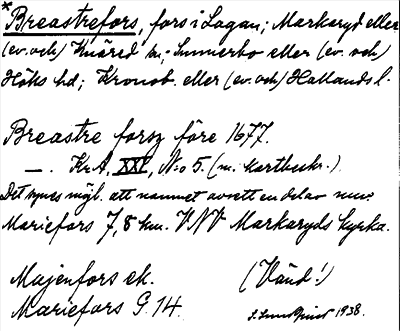 *Breastrefors, fors i Lagan; Markaryd eller
(ev. och) Knäred sn; Sunnerbo eller (ev. och)
Höks hd; Kronob. eller (ev. och) Hallands l.
Breastre forsz före 1677.
— . Kr.A, XXI, N:o 5. (m. kartbeskr.).
Det synes möjl. att namnet avsett en del av nuv.
Mariefors 7,8 km. VNV Markaryds kyrka.
Majenfors ek.
(Vänd!)
Mariefors G. 14.
1938.